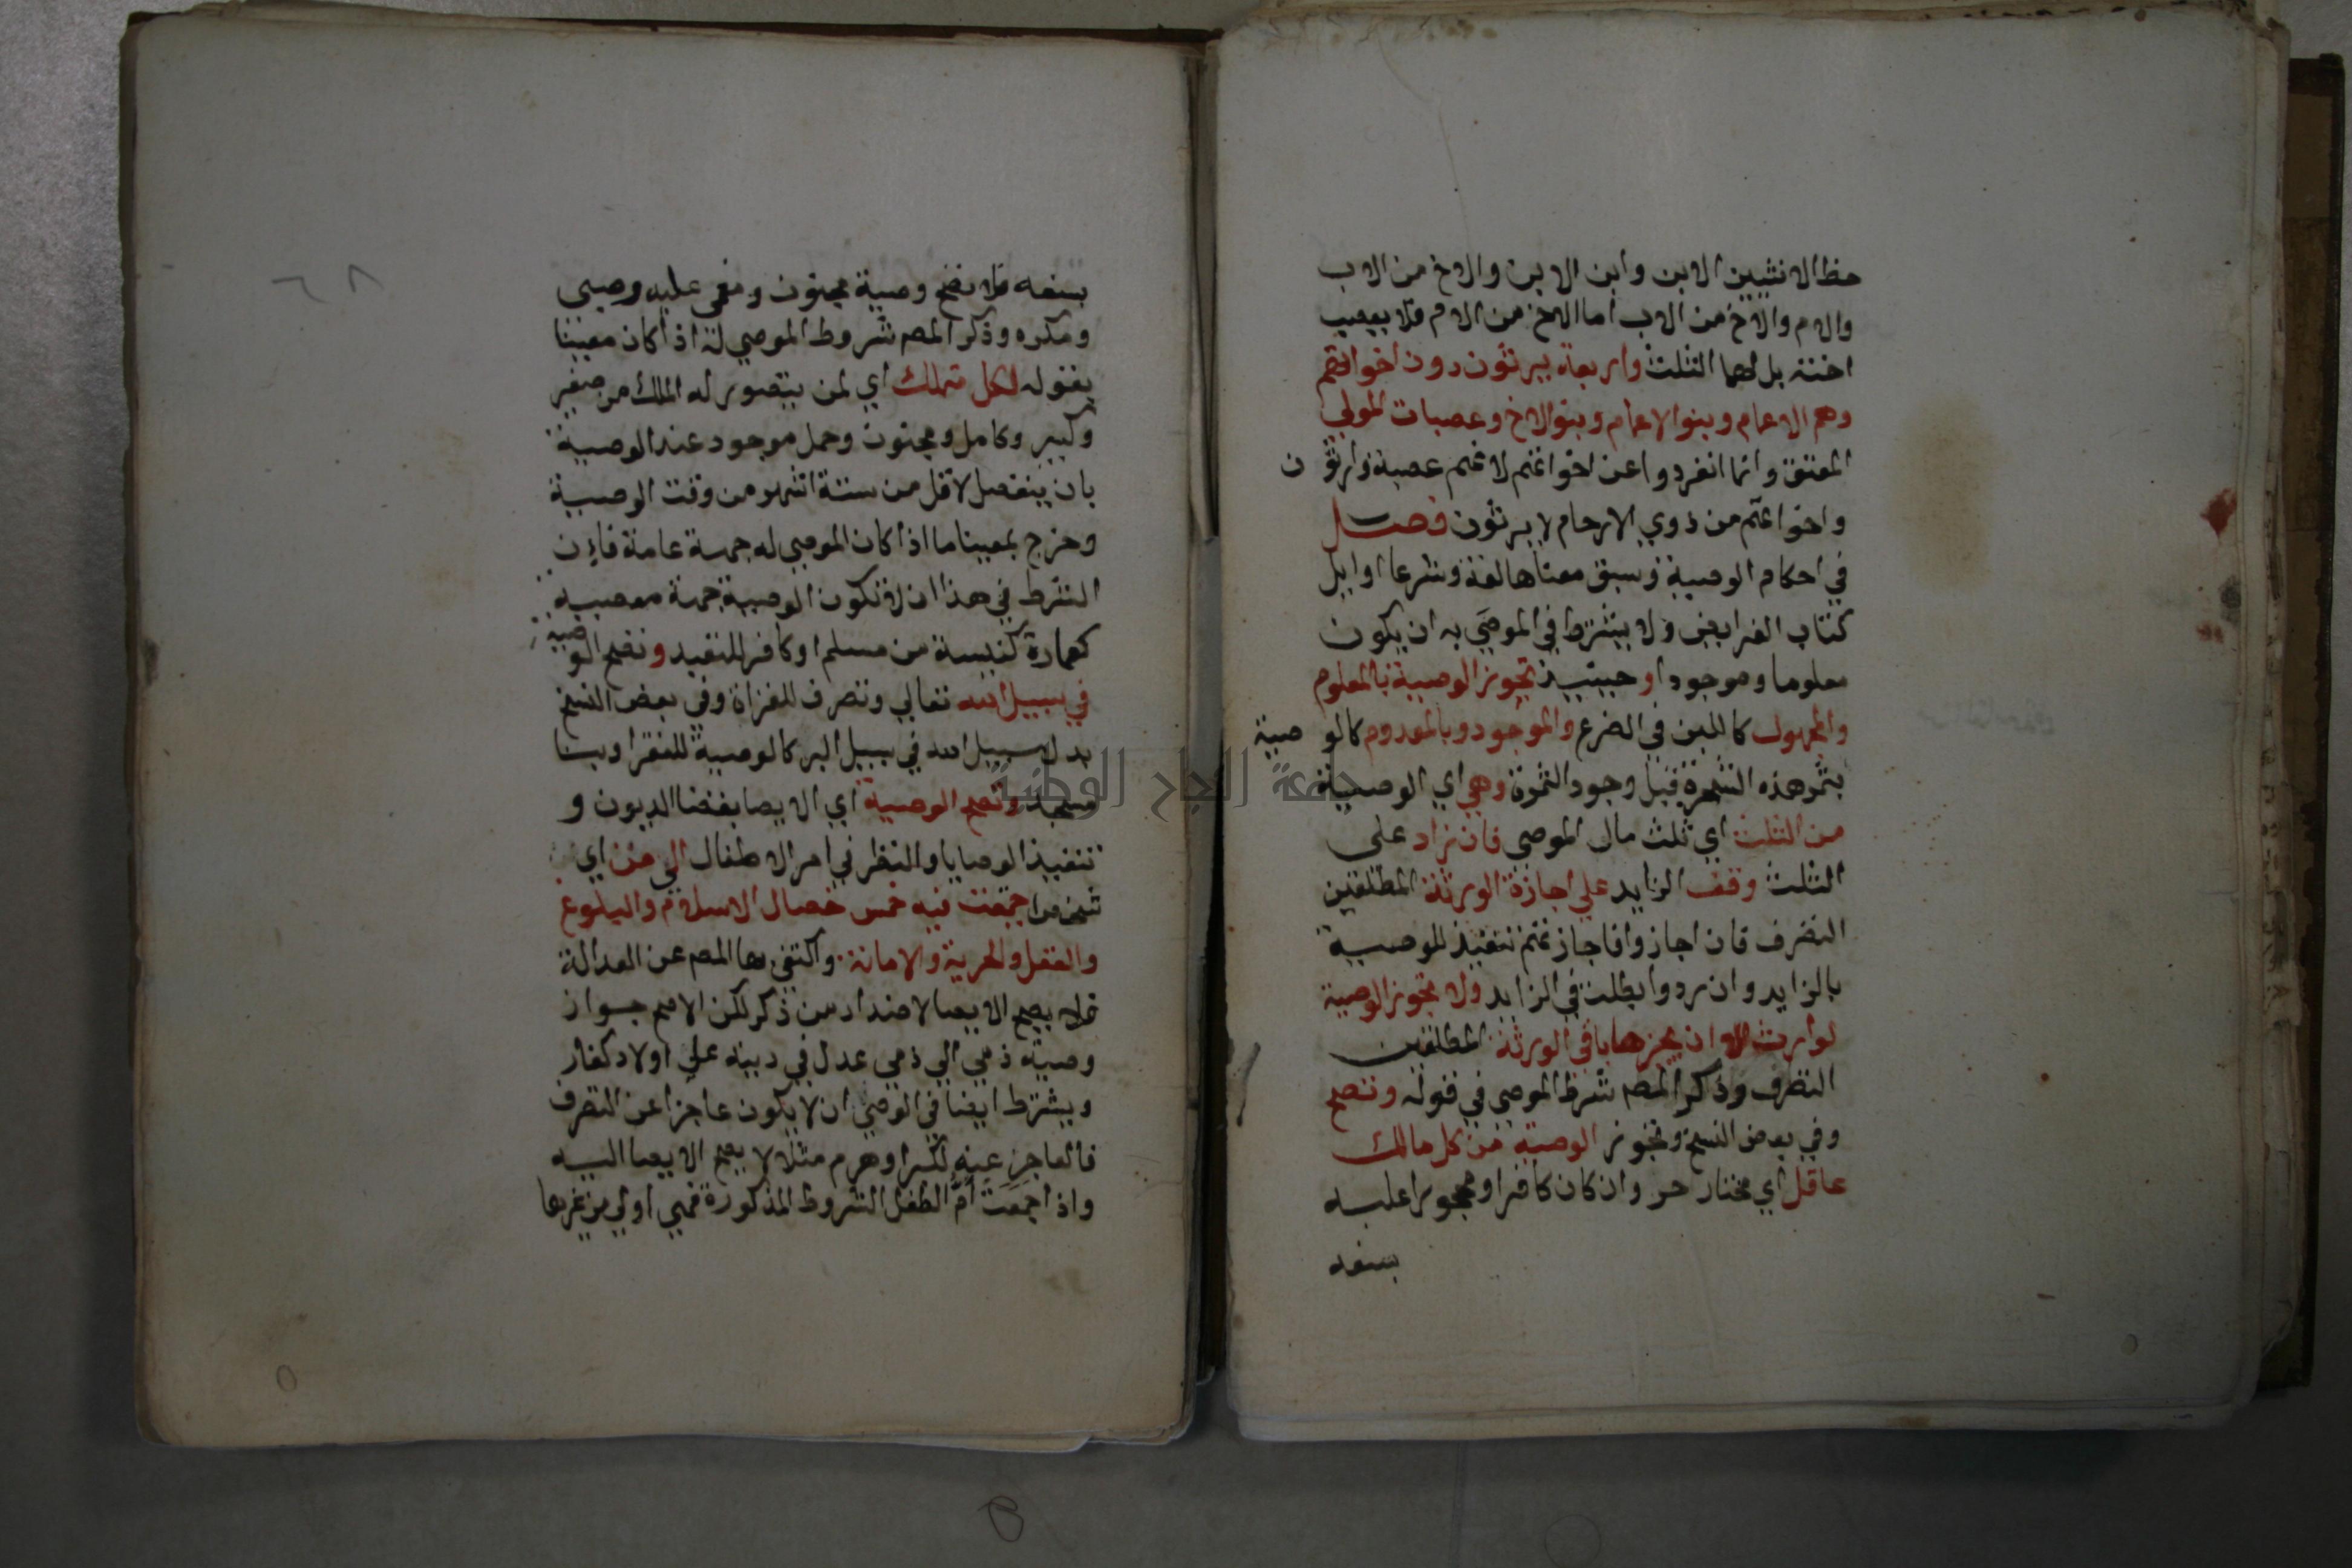 حظ الانثيين الابن وابن الابن والاخ من الاب
والام والاخ من الاب اما الاخ من الام فلا يعصب
اخته بل لهما الثلث واربعة يرثون دون اخواتهم
وهم الاعمام وبنو الاعمام وبنو الاخ وعصبات المولي
المعتق وانما انفردوا عن اخواتهم لانهم عصبة وارثون
واخواتهم من ذوي الارحام لا يرثون فصل
في احكام الوصية وسبق معناها لغة وشرعا اوايل
كتاب الفرايض ولا يشترط في الموصَي به ان يكون
معلوما وموجودا وحينيذ تجوز الوصية بالمعلوم
والمجهول كاللبن في الضرع والموجود وبالمعدوم كالوصية
بثمر هذه الشجرة قبل وجود الثمرة وهي اي الوصية
من الثلث اي ثلث مال الموصي فان زاد علي
الثلث وقف الزايد علي اجازة الورثة المطلقين
التصرف فان اجازوا فاجازتهم تنفيذ للوصية
بالزايد وان ردوا بطلت في الزايد ولا تجوز الوصية
لوارث الا ان يجزها باقي الورثة المطلقين
التصرف وذكر المصم شرط الموصي في قوله وتصح
وفي بعض النسخ وتجوز الوصية من كل مالك
عاقل اي مختار حر وان كان كافرا او محجورا عليه
بسفه
٦٨
بسفه فلا تصح وصية مجنون ومغمي عليه وصبي
ومكره وذكر المصم شروط الموصي له اذا كان معينا
بقوله لكل متملك اي لمن يتصور له الملك من صغير
وكبير وكامل ومجنون وحمل موجود عند الوصية
بان ينفصل لاقل من ستة اشهر من وقت الوصية
وخرج بمعينا ما اذا كان الموصي له جهة عامة فان
الشرط في هذا ان لا تكون الوصية جهة معصية
كعمارة كنيسة من مسلم او كافر للتعبد وتصح الوصية
في سبيل الله تعالي وتصرف للغزاة وفي بعض النسخ
بدل سبيل الله في سبيل البر كالوصية للفقرا وبنا
مسجد وتصح الوصية اي الايصا بقضا الديون و
تنفيذ الوصايا والنظر في امر الاطفال الي من اي
شخص اجتمعت فيه خمس خصال الاسلام والبلوغ
والعقل والحرية والامانة واكتفي بها المصم عن العدالة
فلا يصح الايصا لاضداد من ذكر لكن الاصح جواز
وصية ذمي الي ذمي عدل في دينه علي اولاد كفار
ويشترط ايضا في الوصي ان لا يكون عاجزا عن التصرف
فالعاجز عنه لكبر او هرم مثلا لا يصح الايصا اليه
واذا اجتمعت امّ الطفل الشروط المذكورة فهي اولي من غيرها
جامعة النجاح الوطنية